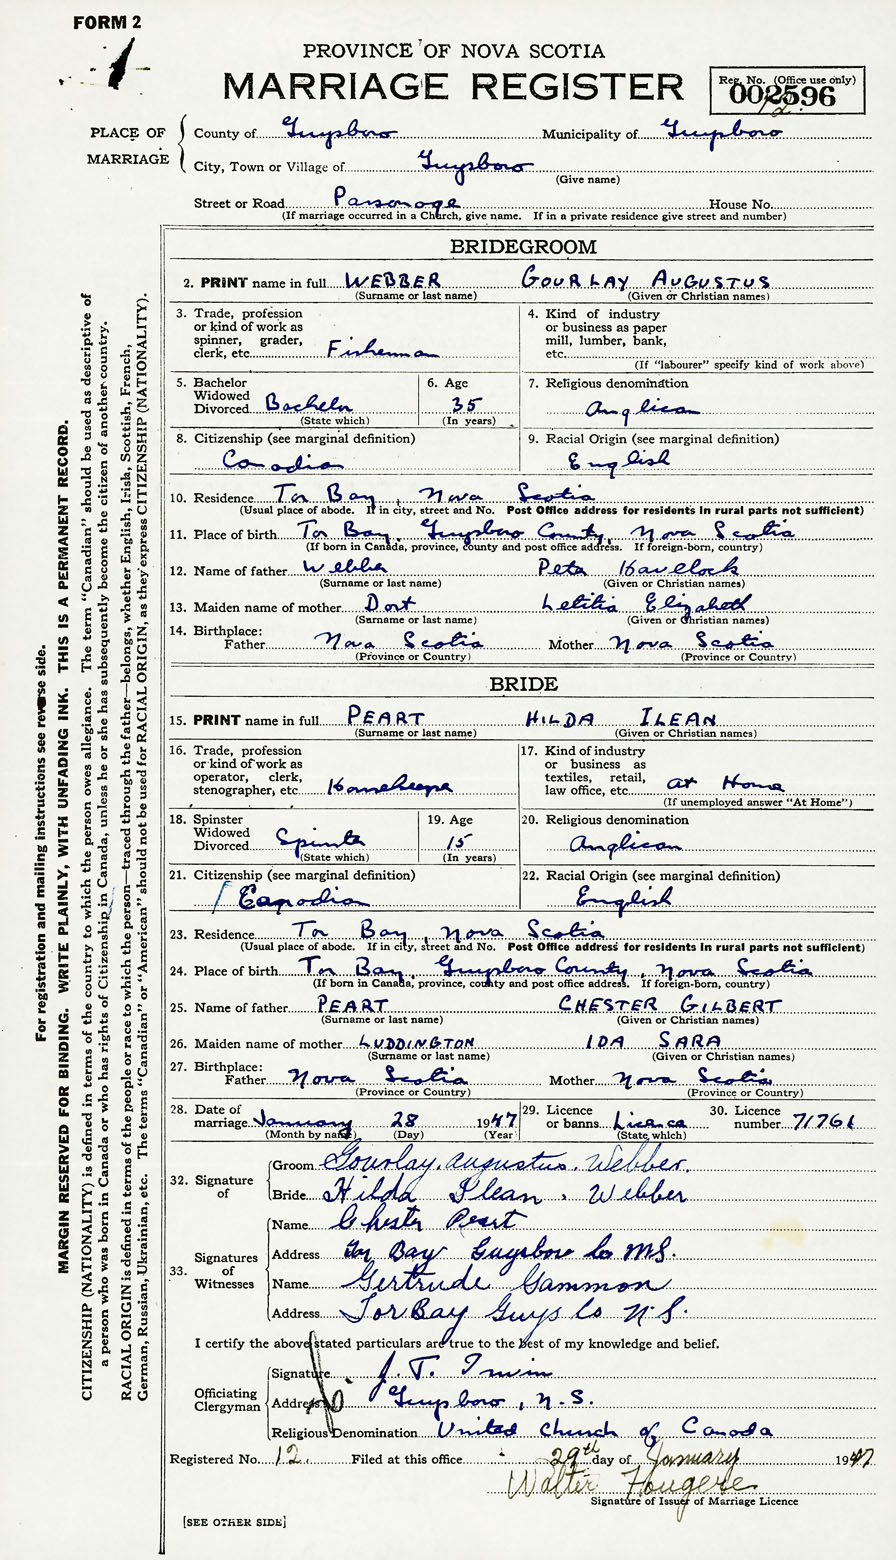 FORM 2
1
PROVINCE OF NOVA SCOTIA
MARRIAGE REGISTER
Reg. No. (Office use only)
002596
12.
PLACE OF MARRIAGE
County of Guysboro Municipality of Guysboro
City, Town or Village of Guysboro
(Give name)
Street or Road Parsonage House No.
(If marriage occurred in a Church, give name. If in a private residence give street and number)
BRIDEGROOM
2. PRINT name in full WEBBER GOURLAY AUGUSTUS
(Surname or last name) (Given or Christian names)
3. Trade, profession or kind of work as spinner, grader, clerk, etc. Fisherman
4. Kind of industry or business as paper mill, lumber, bank, etc.
(If "labourer" specify kind of work above)
5. Bachelor Widowed Divorced Bachelor
(State which)
6. Age 35
(In years)
7. Religious denomination Anglican
8. Citizenship (see marginal definition) Canadian
9. Racial Origin (see marginal definition) English
10. Residence Tor Bay, Nova Scotia
(Usual place of abode. If in city, street and No. Post Office address for residents in rural parts not sufficient)
11. Place of birth Tor Bay, Guysboro County, Nova Scotia
(If born in Canada, province, county and post office address. If foreign-born, country)
12. Name of father Webber Peter Havelock
(Surname or last name) (Given or Christian names)
13. Maiden name of mother Dort Letitia Elizabeth
(Surname or last name) (Given or Christian names)
14. Birthplace: Father Nova Scotia Mother Nova Scotia
(Province or Country) (Province or Country)
BRIDE
15. PRINT name in full PEART HILDA ILEAN
(Surname or last name) (Given or Christian names)
16. Trade, profession or kind of work as operator, clerk, stenographer, etc Housekeeper
17. Kind of industry or business as textiles, retail, law office, etc. At Home
(If unemployed answer "At Home")
18. Spinster Widowed Divorced Spinster
(State which)
19. Age 15
(In years)
20. Religious denomination Anglican
21. Citizenship (see marginal definition) Canadian
22. Racial Origin (see marginal definition) English
23. Residence Tor Bay, Nova Scotia
(Usual place of abode. If in city, street and No. Post Office address for residents in rural parts not sufficient)
24. Place of birth Tor Bay, Guysboro County, Nova Scotia
(If born in Canada, province, county and post office address. If foreign-born, country)
25. Name of father PEART CHESTER GILBERT
(Surname or last name) (Given or Christian names)
26. Maiden name of mother LUDDINGTON IDA SARA
(Surname or last name) (Given or Christian names)
27. Birthplace: Father Nova Scotia Mother Nova Scotia
(Province or Country) (Province or Country)
28. Date of marriage January 28 1947
(Month by name) (Day) (Year)
29. Licence or banns Licence
(State which)
30. Licence number 71761
32. Signature of
Groom Gourlay. Augustus. Webber.
Bride Hilda Ilean. Webber
33. Signatures of Witnesses
Name Chester Peart
Address Tor Bay Guysboro Co NS.
Name Gertrude Gammon
Address Tor Bay Guys Co N.S.
I certify the above stated particulars are true to the best of my knowledge and belief.
Officiating Clergyman
Signature J. T. Irwin
Address Guysboro, N.S.
Religious Denomination United Church of Canada
Registered No. 12 Filed at this office 29th day of January 1947
Walter Fougere
Signature of Issuer of Marriage Licence
[SEE OTHER SIDE]
For registration and mailing instructions see reverse side.
MARGIN RESERVED FOR BINDING. WRITE PLAINLY, WITH UNFADING INK. THIS IS A PERMANENT RECORD.
CITIZENSHIP (NATIONALITY) is defined in terms of the country to which the person owes allegiance. The term "Canadian" should be used as descriptive of
a person who was born in Canada or who has rights of Citizenship in Canada, unless he or she has subsequently become the citizen of another country.
RACIAL ORIGIN is defined in terms of the people or race to which the person—traced through the father—belongs, whether English, Irish, Scottish, French,
German, Russian, Ukrainian, etc. The terms "Canadian" or "American" should not be used for RACIAL ORIGIN, as they express CITIZENSHIP (NATIONALITY).